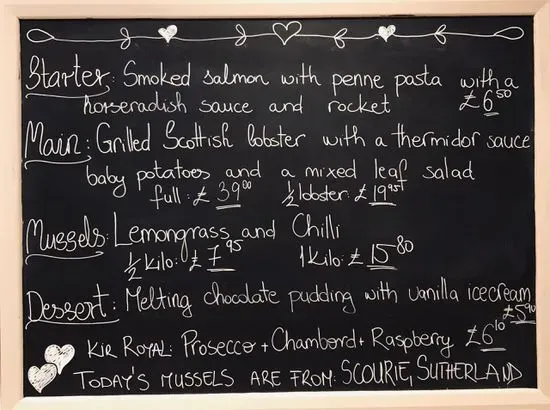 Starter: Smoked salmon with penne pasta with a
horseradish sauce and rocket £6.50
Main: Grilled Scottish lobster with a thermidor sauce
baby potatoes and a mixed leaf salad
full: £39.00 ½ lobster: £19.95
Mussels: Lemongrass and Chilli
½ Kilo: £7.95 1 Kilo: £15.80
Dessert: Melting chocolate pudding with vanilla icecream
£5.90
KIR ROYAL: PROSECCO + CHAMBORD + RASPBERRY £6.10
TODAY'S MUSSELS ARE FROM: SCOURIE, SUTHERLAND